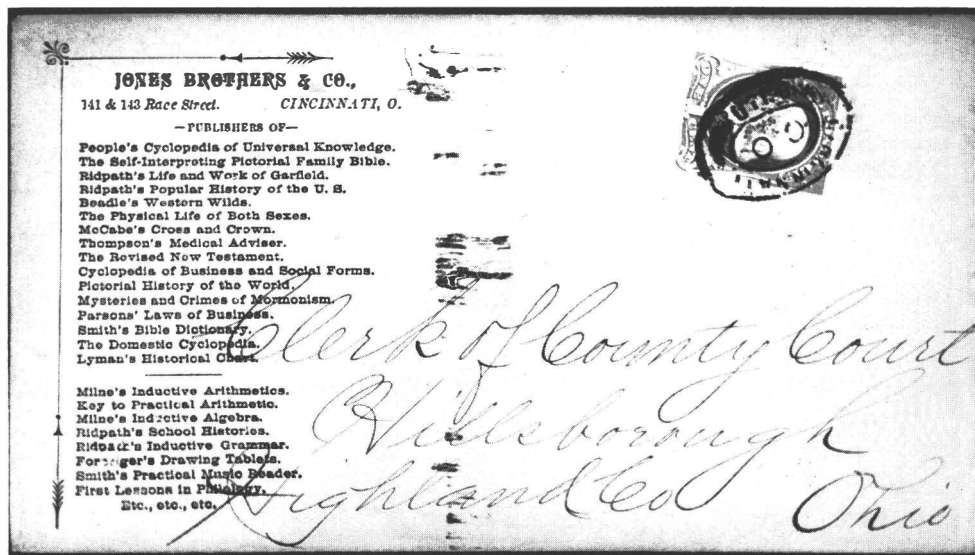 JONES BROTHERS & CO.,
141 & 143 Race Street. CINCINNATI, O.
—PUBLISHERS OF—
People's Cyclopedia of Universal Knowledge.
The Self-Interpreting Pictorial Family Bible.
Ridpath's Life and Work of Garfield.
Ridpath's Popular History of the U. S.
Beadle's Western Wilds.
The Physical Life of Both Sexes.
McCabe's Cross and Crown.
Thompson's Medical Adviser.
The Revised New Testament.
Cyclopedia of Business and Social Forms.
Pictorial History of the World.
Mysteries and Crimes of Mormonism.
Parsons' Laws of Business.
Smith's Bible Dictionary.
The Domestic Cyclopedia.
Lyman's Historical Chart.
Milne's Inductive Arithmetics.
Key to Practical Arithmetic.
Milne's Inductive Algebra.
Ridpath's School Histories.
Ridpath's Inductive Grammar.
Forbriger's Drawing Tablets.
Smith's Practical Music Reader.
First Lessons in Philology.
Etc., etc., etc.
Clerk of County Court
Hillsborough
Highland Co Ohio